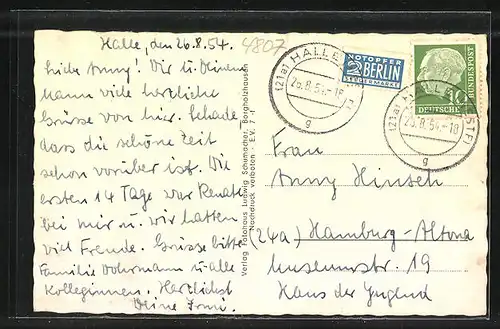 Halle, den 26.8.54.
4807
Liebe Anny! Dir u. Deinem
Mann viele herzliche
Grüsse von hier. Schade,
dass die schöne Zeit
schon vorüber ist. Die
ersten 14 Tage war Renate
bei mir u. wir hatten
viel Freude. Grüsse bitte
Familie Dohrmann u. alle
Kolleginnen. Herzlichst
Deine Irmi.
Verlag Fotohaus Ludwig Schumacher, Borgholzhausen
Nachdruck verboten - E.V.
(21a) HALLE (WESTF)
26.8.54.-18
g
NOTOPFER
2 BERLIN
STEUERMARKE
10
DEUTSCHE BUNDESPOST
(21a) HALLE (WESTF)
26.8.54.-18
g
Frau
Anny Hinsch
(24a) Hamburg-Altona
Museumstr. 19
Haus der Jugend